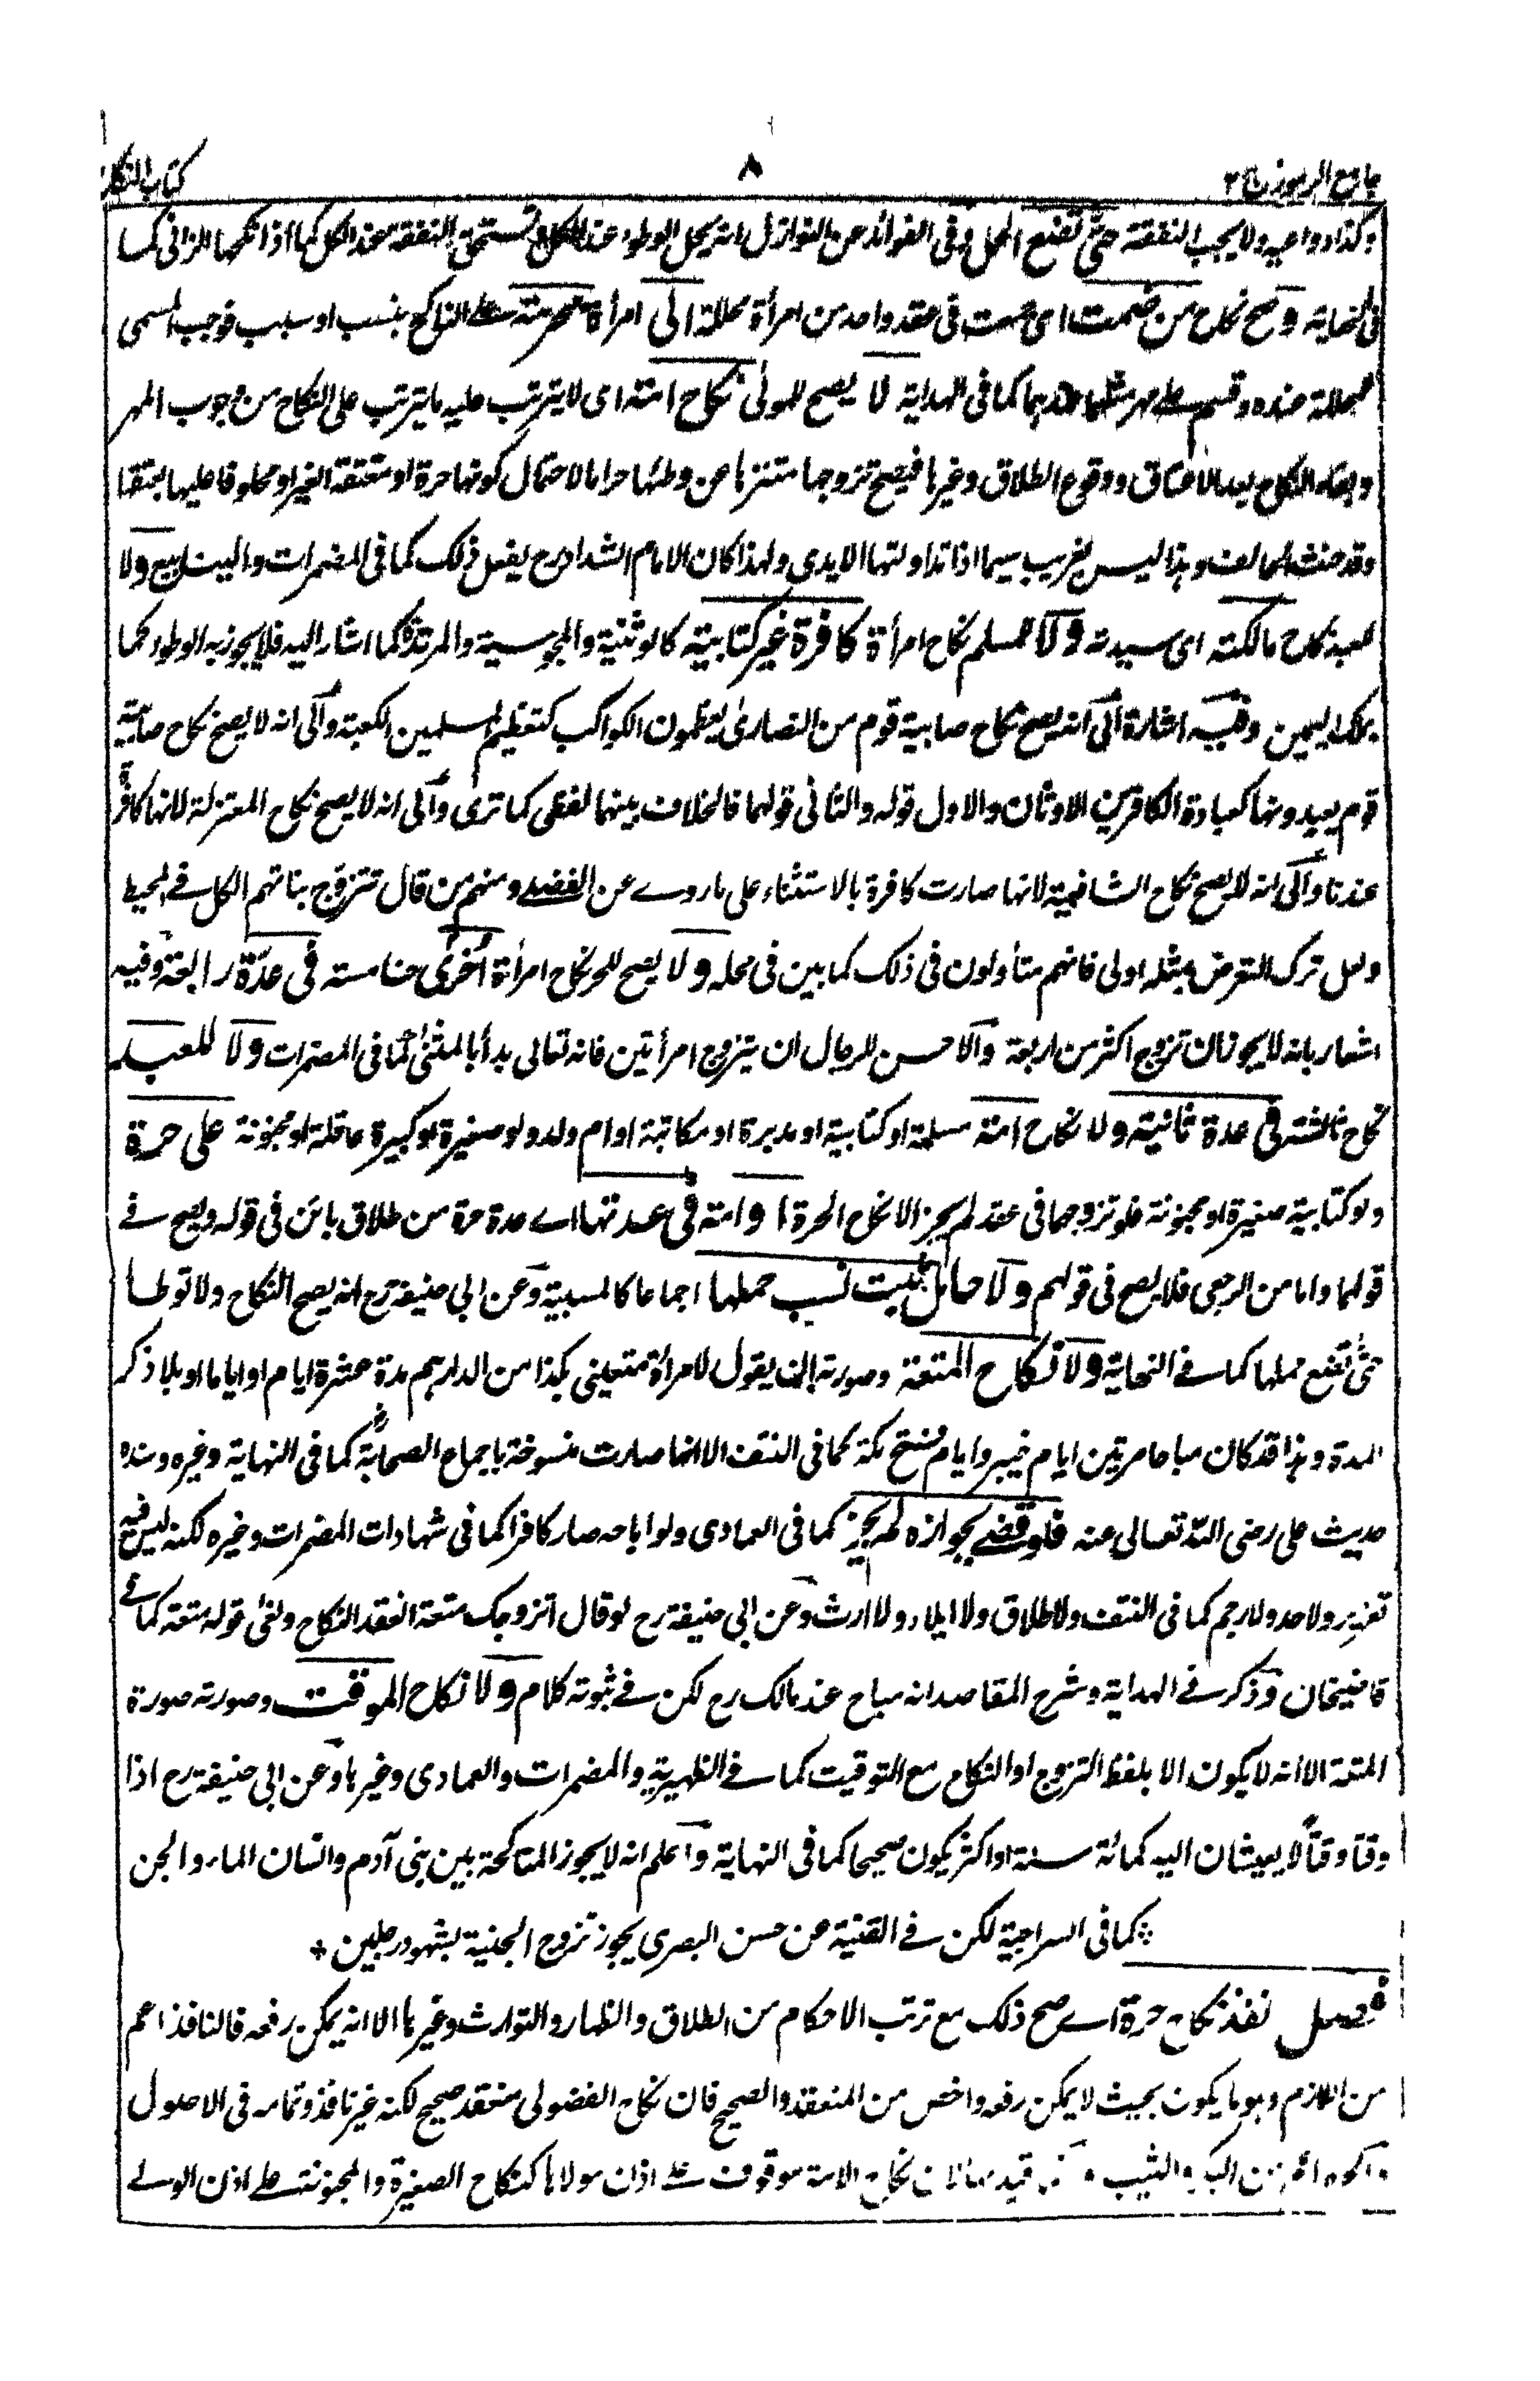 جامع الرموز ج ٢
٨
كتاب النكاح
وكذا دواعيه ولا يجب النفقة حتى تضع الحمل وفي الفوائد عن النوازل انه يحل الوطء عند الكل وتستحق النفقة عند الكل كما اذا نكحها الزاني كما
في النهاية وصح نكاح من ضمت اى جمعت في عقد واحد من امرأة محللة الى امرأة محرمة على الناكح بنسب او سبب فوجب المسمى
للمحللة عنده وقسم على مهر مثلهما عندهما كما في الهداية لا يصح للمولى نكاح امته اى لا يترتب عليه ما يترتب على النكاح من وجوب المهر
وبقاء النكاح بعد الاعتاق ووقوع الطلاق وغيرها فيصح تزوجها متنزها عن وطئها حراما لاحتمال كونها حرة او معتقة الغير او محلوفا عليها بعتقها
وقد حنث الحالف وهذا ليس بغريب سيما اذا تداولتها الايدى ولهذا كان الامام الشداد رح يفعل ذلك كما في المضمرات ولا
للعبد نكاح مالكته اى سيدته ولا لمسلم نكاح امرأة كافرة غير كتابية كالوثنية والمجوسية والمرتدة كما اشار اليه فلا يجوز به الوطء كما
بملك اليمين وفيه اشارة الى انه يصح نكاح صابية قوم من النصارى يعظمون الكواكب كتعظيم المسلمين الكعبة والى انه لا يصح نكاح صابية
قوم يعبدونها كعبادة الكافرين الاوثان والاول قوله والثاني قولهما فالخلاف بينهما لفظى كما ترى والى انه لا يصح نكاح المعتزلة لانها كافرة
عندنا والى انه لا يصح نكاح الشافعية لانها صارت كافرة بالاستثناء على ما روے عن الفضلے ومنهم من قال تتزوج بناتهم الكل فے المحيط
ولعل ترك التعرض بمثله اولى فانهم متأولون في ذلك كما بين في محله ولا يصح للحر نكاح امرأة اخرى خامسة في عدة رابعة وفيه
اشعار بانه لا يجوز ان تزوج اكثر من اربعة والاحسن للرجال ان يتزوج امرأتين فانه تعالى بدأ بالمثنى كما في المضمرات ولا للعبد
نكاح ثالثة في عدة ثانية ولا نكاح امة مسلمة او كتابية او مدبرة او مكاتبة او ام ولد ولو صغيرة او كبيرة عاقلة او مجنونة على حرة
ولو كتابية صغيرة او مجنونة فلو تزوجهما في عقد لم يجز الا نكاح الحرة او امة في عدتها اے عدة حرة من طلاق بائن في قوله ويصح فے
قولهما واما من الرجعى فلا يصح في قولهم ولا حامل ثبت نسب حملها اجماعا كالمسبية وعن ابي حنيفة رح انه يصح النكاح ولا توطأ
حتى تضع حملها كما فے النهاية ولا نكاح المتعة وصورته ان يقول لامرأة متعيني بكذا من الدراهم مدة عشرة ايام او اياما او بلا ذكر
المدة وهذا قد كان مباحا مرتين ايام خيبر وايام فتح مكة كما في النتف الا انها صارت منسوخة باجماع الصحابة كما في النهاية وغيره وسنده
حديث على رضى الله تعالى عنه فلو قضے بجوازه لم يجز كما في العمادى ولو اباحه صار كافرا كما في شهادات المضمرات وغيره لكنه ليس فيه
تعزير ولا حد ولا رجم كما في النتف ولا طلاق ولا ايلاء ولا ارث وعن ابي حنيفة رح لو قال اتزوجك متعة انعقد النكاح ولغى قوله متعة كما فے
قاضيخان وذكر فے الهداية وشرح المقاصد انه مباح عند مالك رح لكن فے ثبوته كلام ولا نكاح الموقت وصورته صورة
المتعة الا انه لا يكون الا بلفظ التزوج او النكاح مع التوقيت كما فے الظهيرية والمضمرات والعمادى وغيرها وعن ابي حنيفة رح اذا
وقتا وقتا لا يعيشان اليه كمائة سنة او اكثر يكون صحيحا كما في النهاية واعلم انه لا يجوز المناكحة بين بني آدم وانسان الماء والجن
كما في السراجية لكن فے القنية عن حسن البصرى يجوز تزوج الجنية بشهود رجلين
فصل نفذ نكاح حرة اے صح ذلك مع ترتب الاحكام من الطلاق والظهار والتوارث وغيرها الا انه يمكن رفعه فالنافذ اعم
من اللازم وهو ما يكون بحيث لا يمكن رفعه واخص من المنعقد والصحيح فان نكاح الفضولى منعقد صحيح لكنه غير نافذ وتمامه في الاصول
من البكر والثيب قيد بها لان نكاح الامة موقوف علے اذن مولاها كنكاح الصغيرة والمجنونة علے اذن الولے